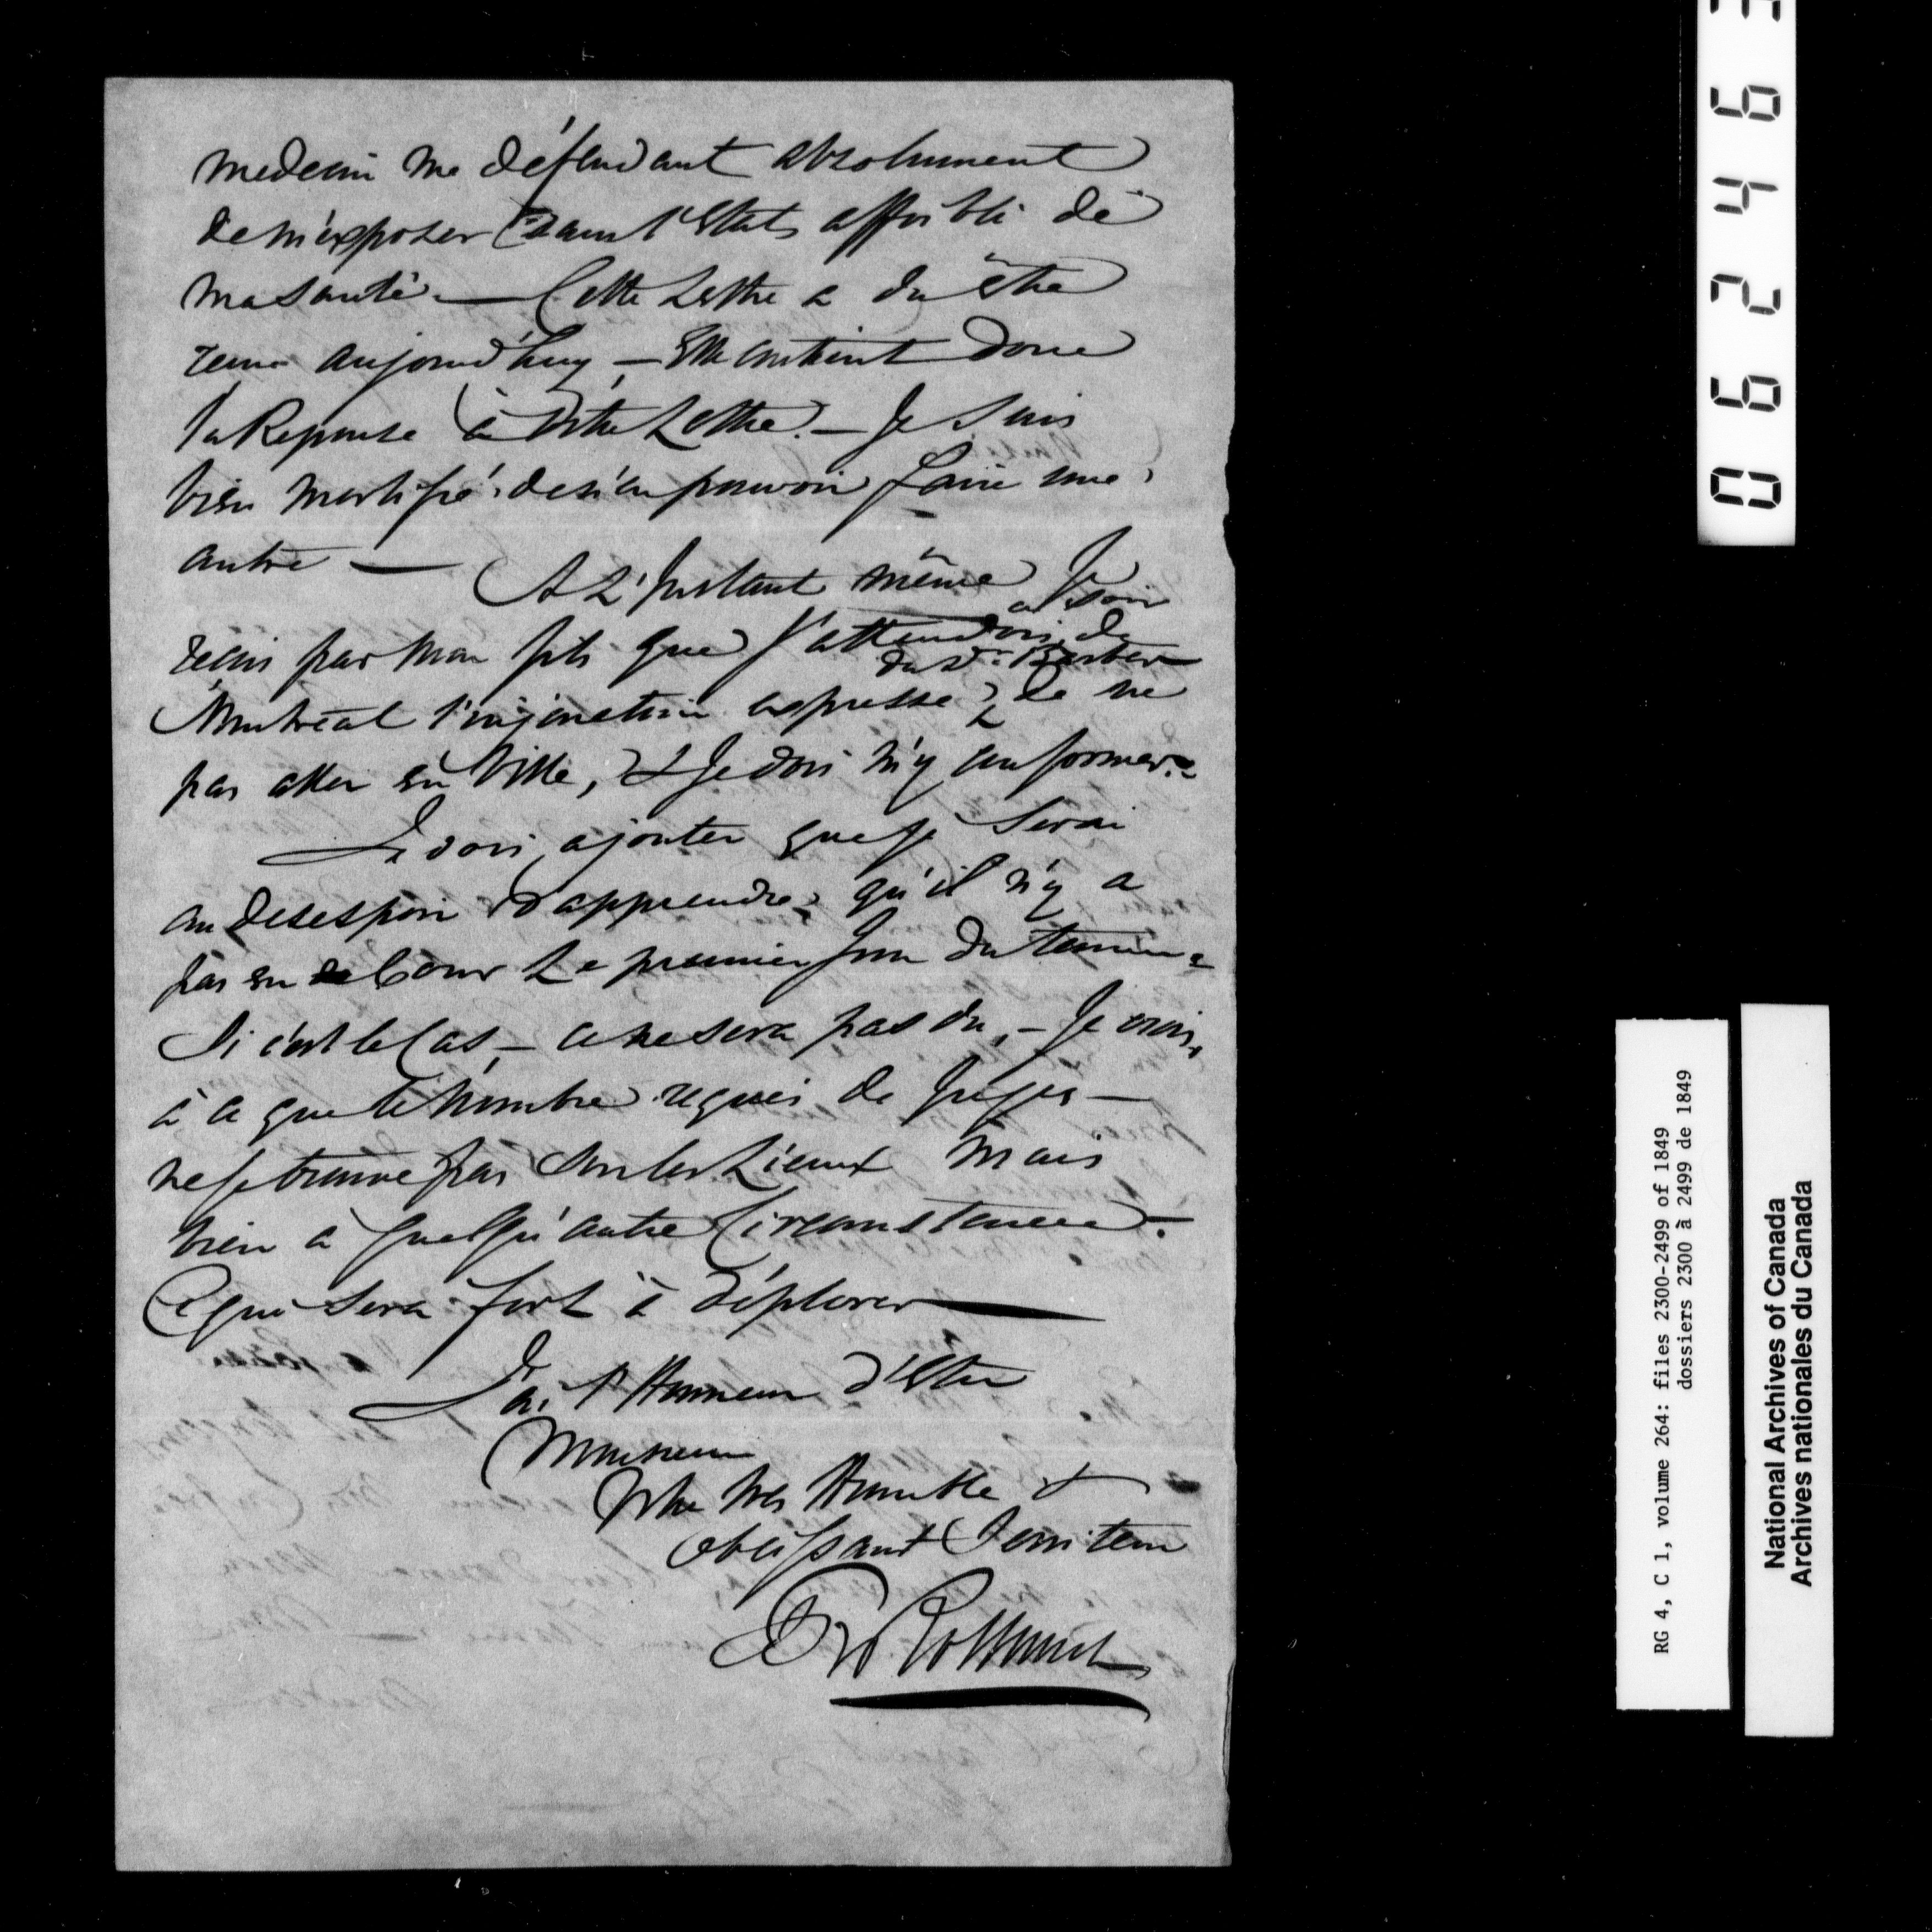 medecin me défendant absolument
de m'exposer dans l'Etat affoibli de
ma santé — Cette Lettre a du être
reçue aujourd'huy — Elle contient donc
la Reponse à Votre Lettre. — Je suis
bien mortifié de n'en pouvoir faire une
autre — A L'Instant même Je
reçois par mon fils que J'attendois ce soir de
Montreal l'injonction expresse du Dr. de ne
pas aller en Ville, & Je dois m'y conformer.
Je dois ajouter que je serai
au desespoir d'apprendre qu'il n'y a
pas eu de Cour Le premier Jour du terme
Si c'est le Cas, — ce ne sera pas du, — Je crois,
à ce que le nombre requis de Juges —
ne se trouve pas sur les Lieux mais
bien à quelqu'autre Circonstance —
Ce qui sera fort à déplorer —
J'ai l'Honneur d'Etre
Monsieur
Votre tres Humble &
obeissant Serviteur
Rolland
0 6 2 4 6 3
RG 4, C 1, volume 264: files 2300-2499 of 1849
dossiers 2300 à 2499 de 1849
National Archives of Canada
Archives nationales du Canada